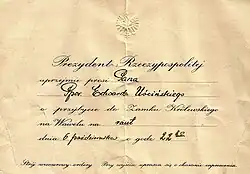 Prezydent Rzeczypospolitej
uprzejmie prosi Pana
Rpor. Edwarda Uścińskiego
o przybycie do Zamku Królewskiego
na Wawelu na raut
dnia 6 października o godz. 22
Strój wieczorowy ordery Przy wejściu uprasza się o okazanie zaproszenia.